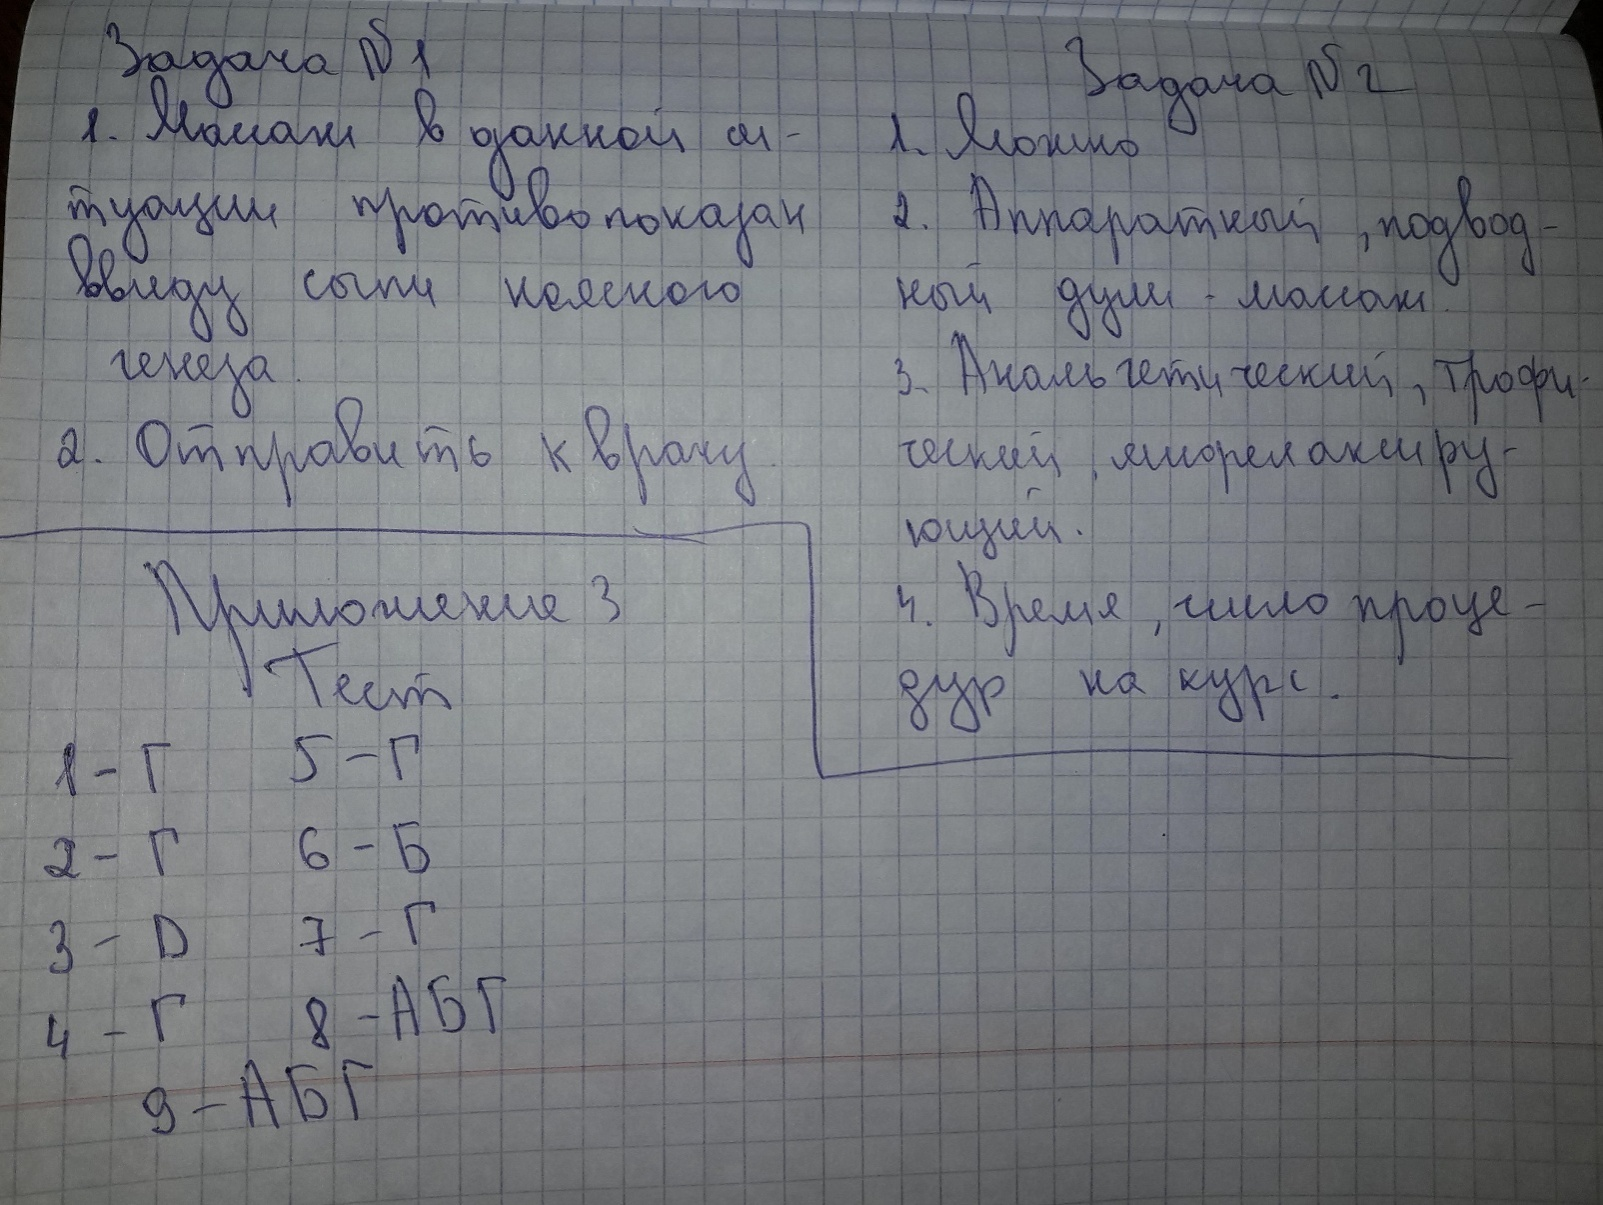 Задача №1
1. Массаж в данной си-
туации противопоказан
ввиду сыпи неясного
генеза.
2. Отправить к врачу.
Задача №2
1. Можно
2. Аппаратный, подвод-
ный душ-массаж.
3. Анальгетический, трофи-
ческий, миорелаксиру-
ющий.
4. Время, число проце-
дур на курс.
Приложение 3
Тест
1-Г 5-Г
2-Г 6-Б
3-D 7-Г
4-Г 8-АБГ
9-АБГ